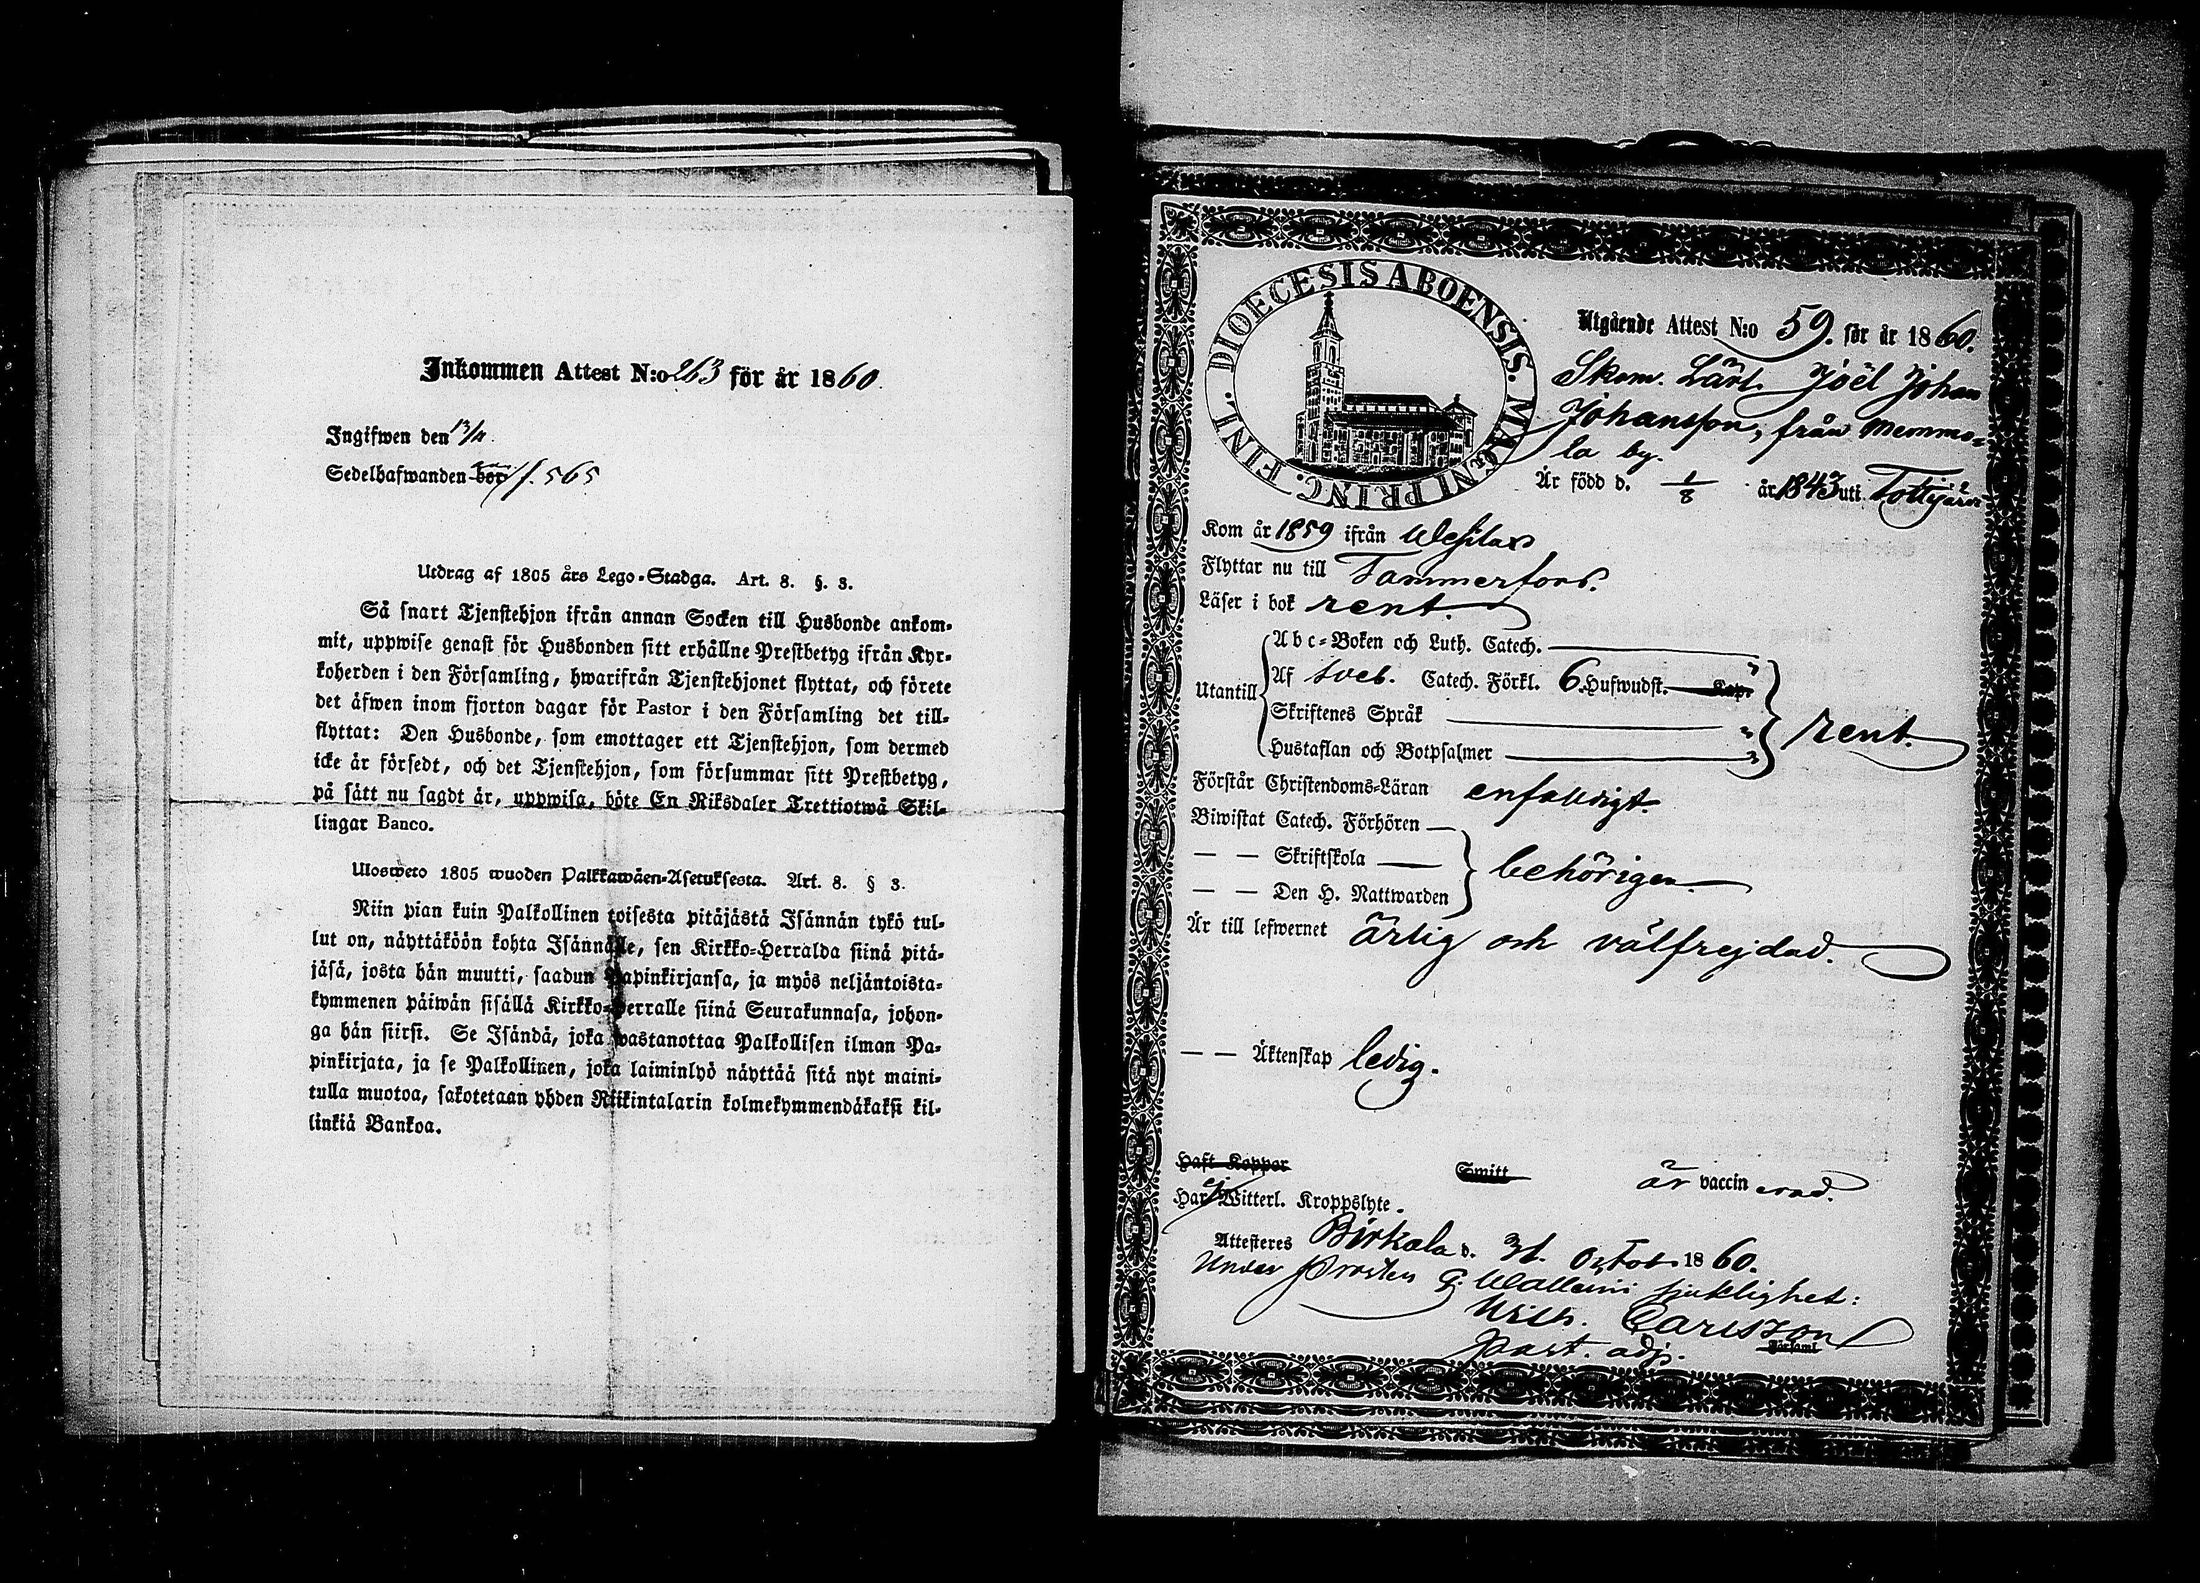 Inkommen Attest N:o 263 för år 1860.
Ingifwen den 13/11.
Sedelhafwanden bor f. 565
Utdrag af 1805 års Lego-Stadga. Art. 8. §. 3.
Så snart Tjenstehjon ifrån annan Socken till Husbonde ankom-
mit, uppwise genast för Husbonden sitt erhållne Prestbetyg ifrån Kyr-
koherden i den Församling, hwarifrån Tjenstehjonet flyttat, och förete
det äfwen inom fjorton dagar för Pastor i den Församling det till-
flyttat: Den Husbonde, som emottager ett Tjenstehjon, som dermed
icke är försedt, och det Tjenstehjon, som försummar sitt Prestbetyg,
på sätt nu sagdt är, uppwisa, böte En Riksdaler Trettiotwå Skil-
lingar Banco.
Ulosweto 1805 wuoden Palkkawäen-Asetuksesta. Art. 8. § 3.
Niin pian kuin Palkollinen toisesta pitäjästä Isännän tykö tul-
lut on, näyttäköön kohta Isännälle, sen Kirkko-Herralda siinä pitä-
jäsä, josta hän muutti, saadun Papinkirjansa, ja myös neljäntoista-
kymmenen päiwän sisällä Kirkko-Herralle siinä Seurakunnasa, johon-
ga hän siirsi. Se Isändä, joka wastanottaa Palkollisen ilman Pa-
pinkirjata, ja se Palkollinen, joka laiminlyö näyttää sitä nyt maini-
tulla muotoa, sakotetaan yhden Riikintalarin kolmekymmendäkaksi kil-
linkiä Bankoa.
DIOECESIS ABOENSIS. MAGNI PRINC. FINL.
Utgående Attest N:o 59. för år 1860.
Skom. Lärl. Joël Johan
Johansson, från Memmo-
la by.
Är född d. 1/8 år 1843 uti Tottijärvi
Kom år 1859 ifrån Wesilax
Flyttar nu till Tammerfors.
Läser i bok rent.
Abc-Boken och Luth. Catech. "
Utantill Af sveb. Catech. Förkl. 6. Hufwudst. Kap. rent.
Skriftenes Språk "
Hustaflan och Botpsalmer "
Förstår Christendoms-Läran enfaldigt.
Biwistat Catech. Förhören
— — Skriftskola behörigen.
— — Den H. Nattwarden
Är till lefwernet ärlig och välfrejdad.
— — Äktenskap ledig.
Haft Koppor Smitt är vaccinerad.
Har ej Witterl. Kroppslyte.
Attesteres Birkala d. 31. October 1860.
Under Prosten G: Wallenii sjuklighet:
Wilh. Carlsson
Past. adj. Församl.